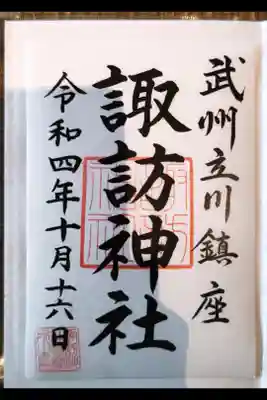 武州立川鎮座
諏訪神社
令和四年十月十六日